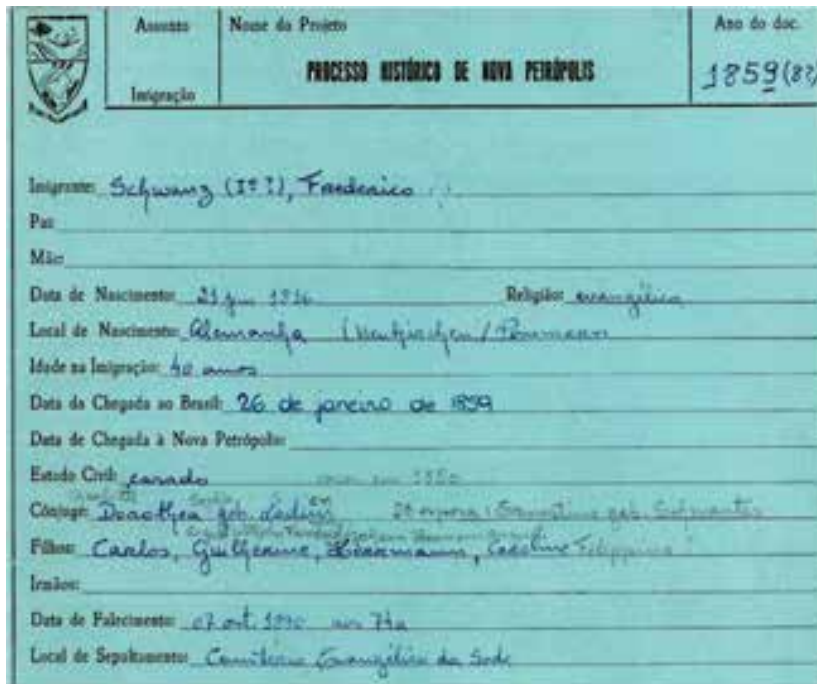 Assunto Nome do Projeto Ano do doc.
PROCESSO HISTÓRICO DE NOVA PETRÓPOLIS 1859(8?)
Imigração
Imigrante: Schwanz (I° ?), Frederico
Pai:
Mãe:
Data de Nascimento: Religião: evangélica
Local de Nascimento: Alemanha
Idade na Imigração: 40 anos
Data da Chegada ao Brasil: 26 de janeiro de 1859
Data de Chegada à Nova Petrópolis:
Estado Civil: casado
Cônjuge: Dorothea geb. 2ª esposa: geb.
Filhos: Carlos, Guilherme, Herrmann, Caroline Filippina
Irmãos:
Data de Falecimento: 07 1890
Local de Sepultamento: Cemitério Evangélico da Sede